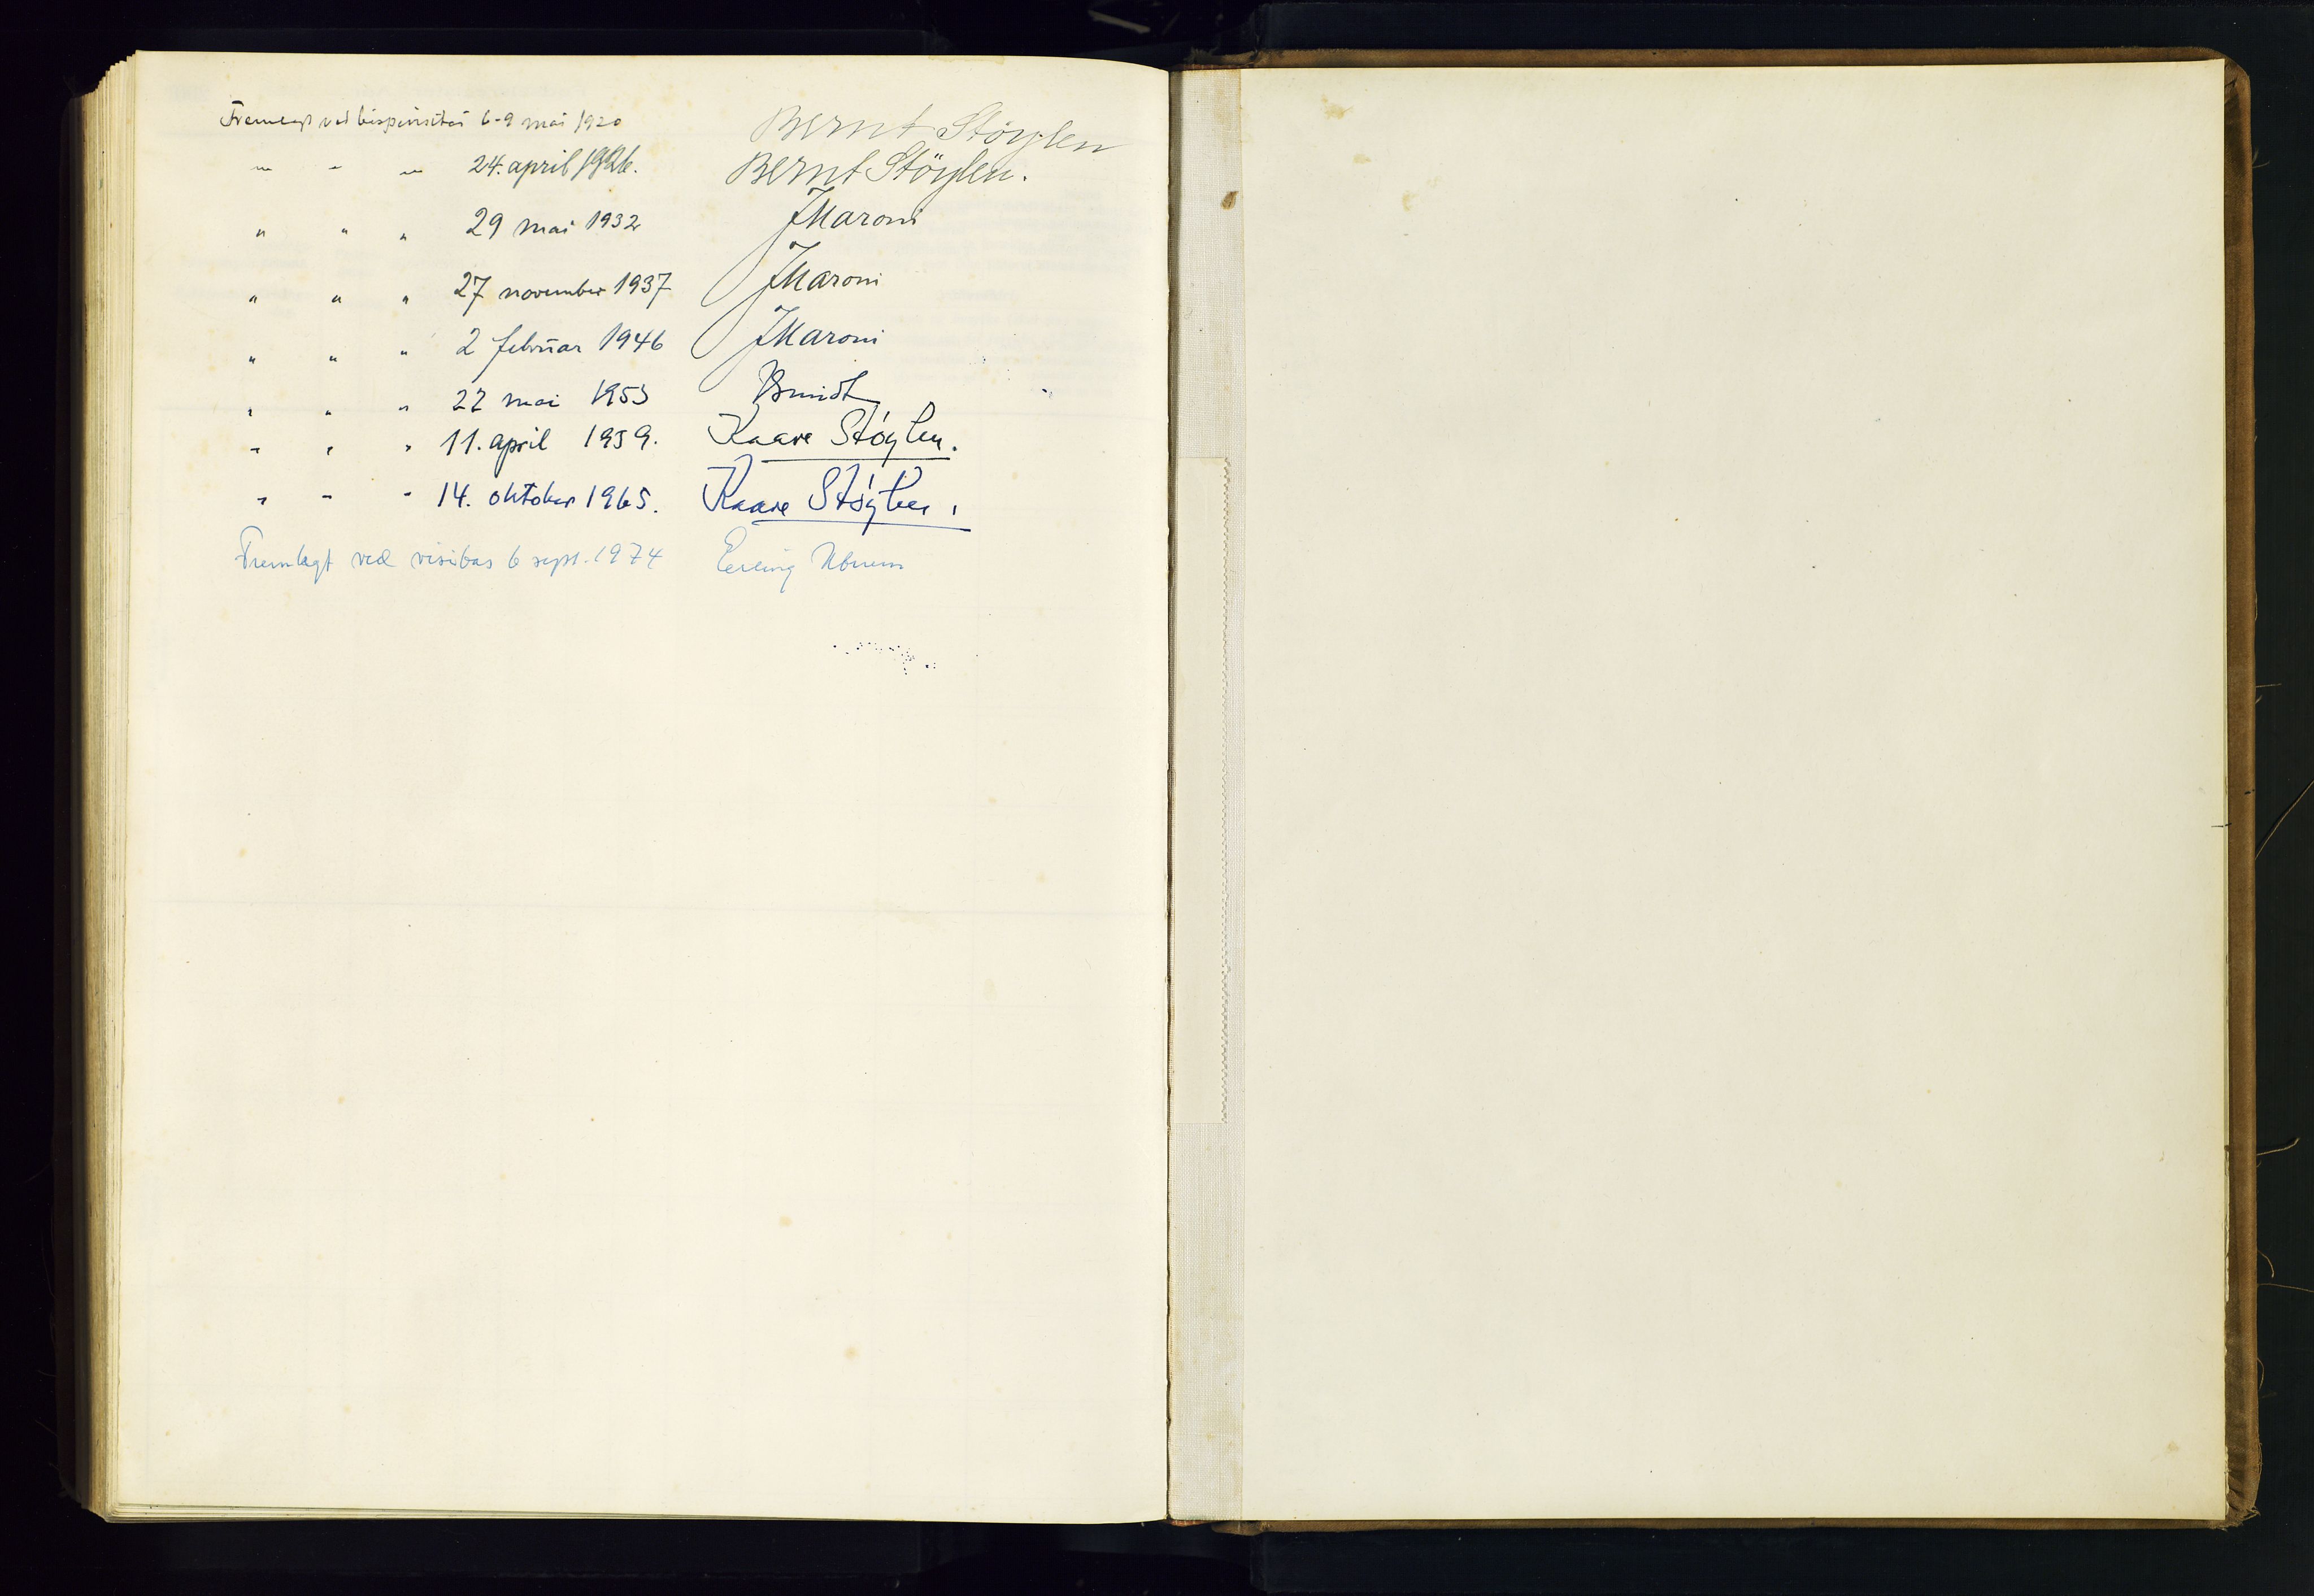 Fremlagt ved bispevisitas 6-9 mai 1920 Bernt Støylen
" " " 24. april 1926. Bernt Støylen.
" " " 29 mai 1932 JMaroni
" " " 27 november 1937 JMaroni
" " " 2 februar 1946 JMaroni
" " " 22 mai 1953
" " " 11. april 1959. Kaare Støylen.
" " " 14. oktober 1965. Kaare Støylen.
Fremlagt ved visitas 6 sept. 1974 Erling Utnem